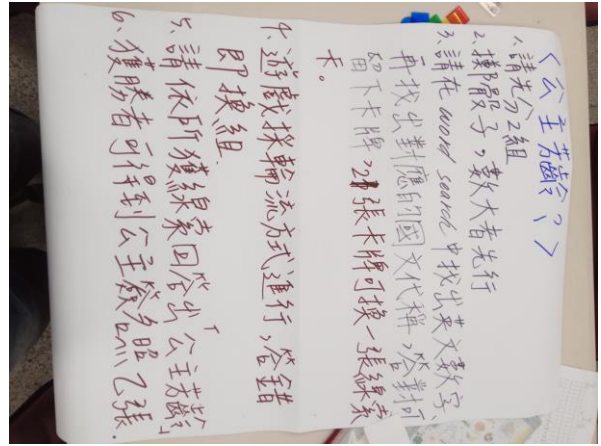 <公主芳齡??>
1.請先分2組
2.擲骰子,數大者先行
3.請在word search中找出英文數字
再找出對應的國文代稱,答對可
留下卡牌,2張卡牌可換一張線索
卡。
4.遊戲採輪流方式進行,答錯
即換組.
5.請依所獲線索回答出「公主芳齡」
6.獲勝者可得到公主簽名照乙張.